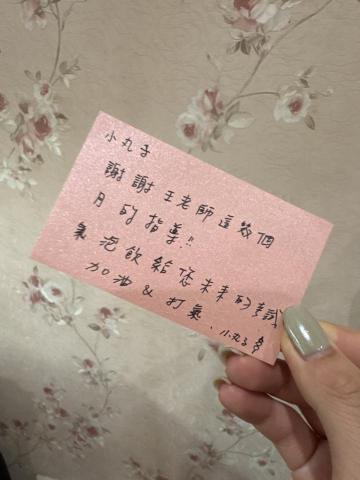 小丸子
謝謝王老師這幾個
月的指導!!
氣泡飲給您未來的
加油&打氣、小丸子